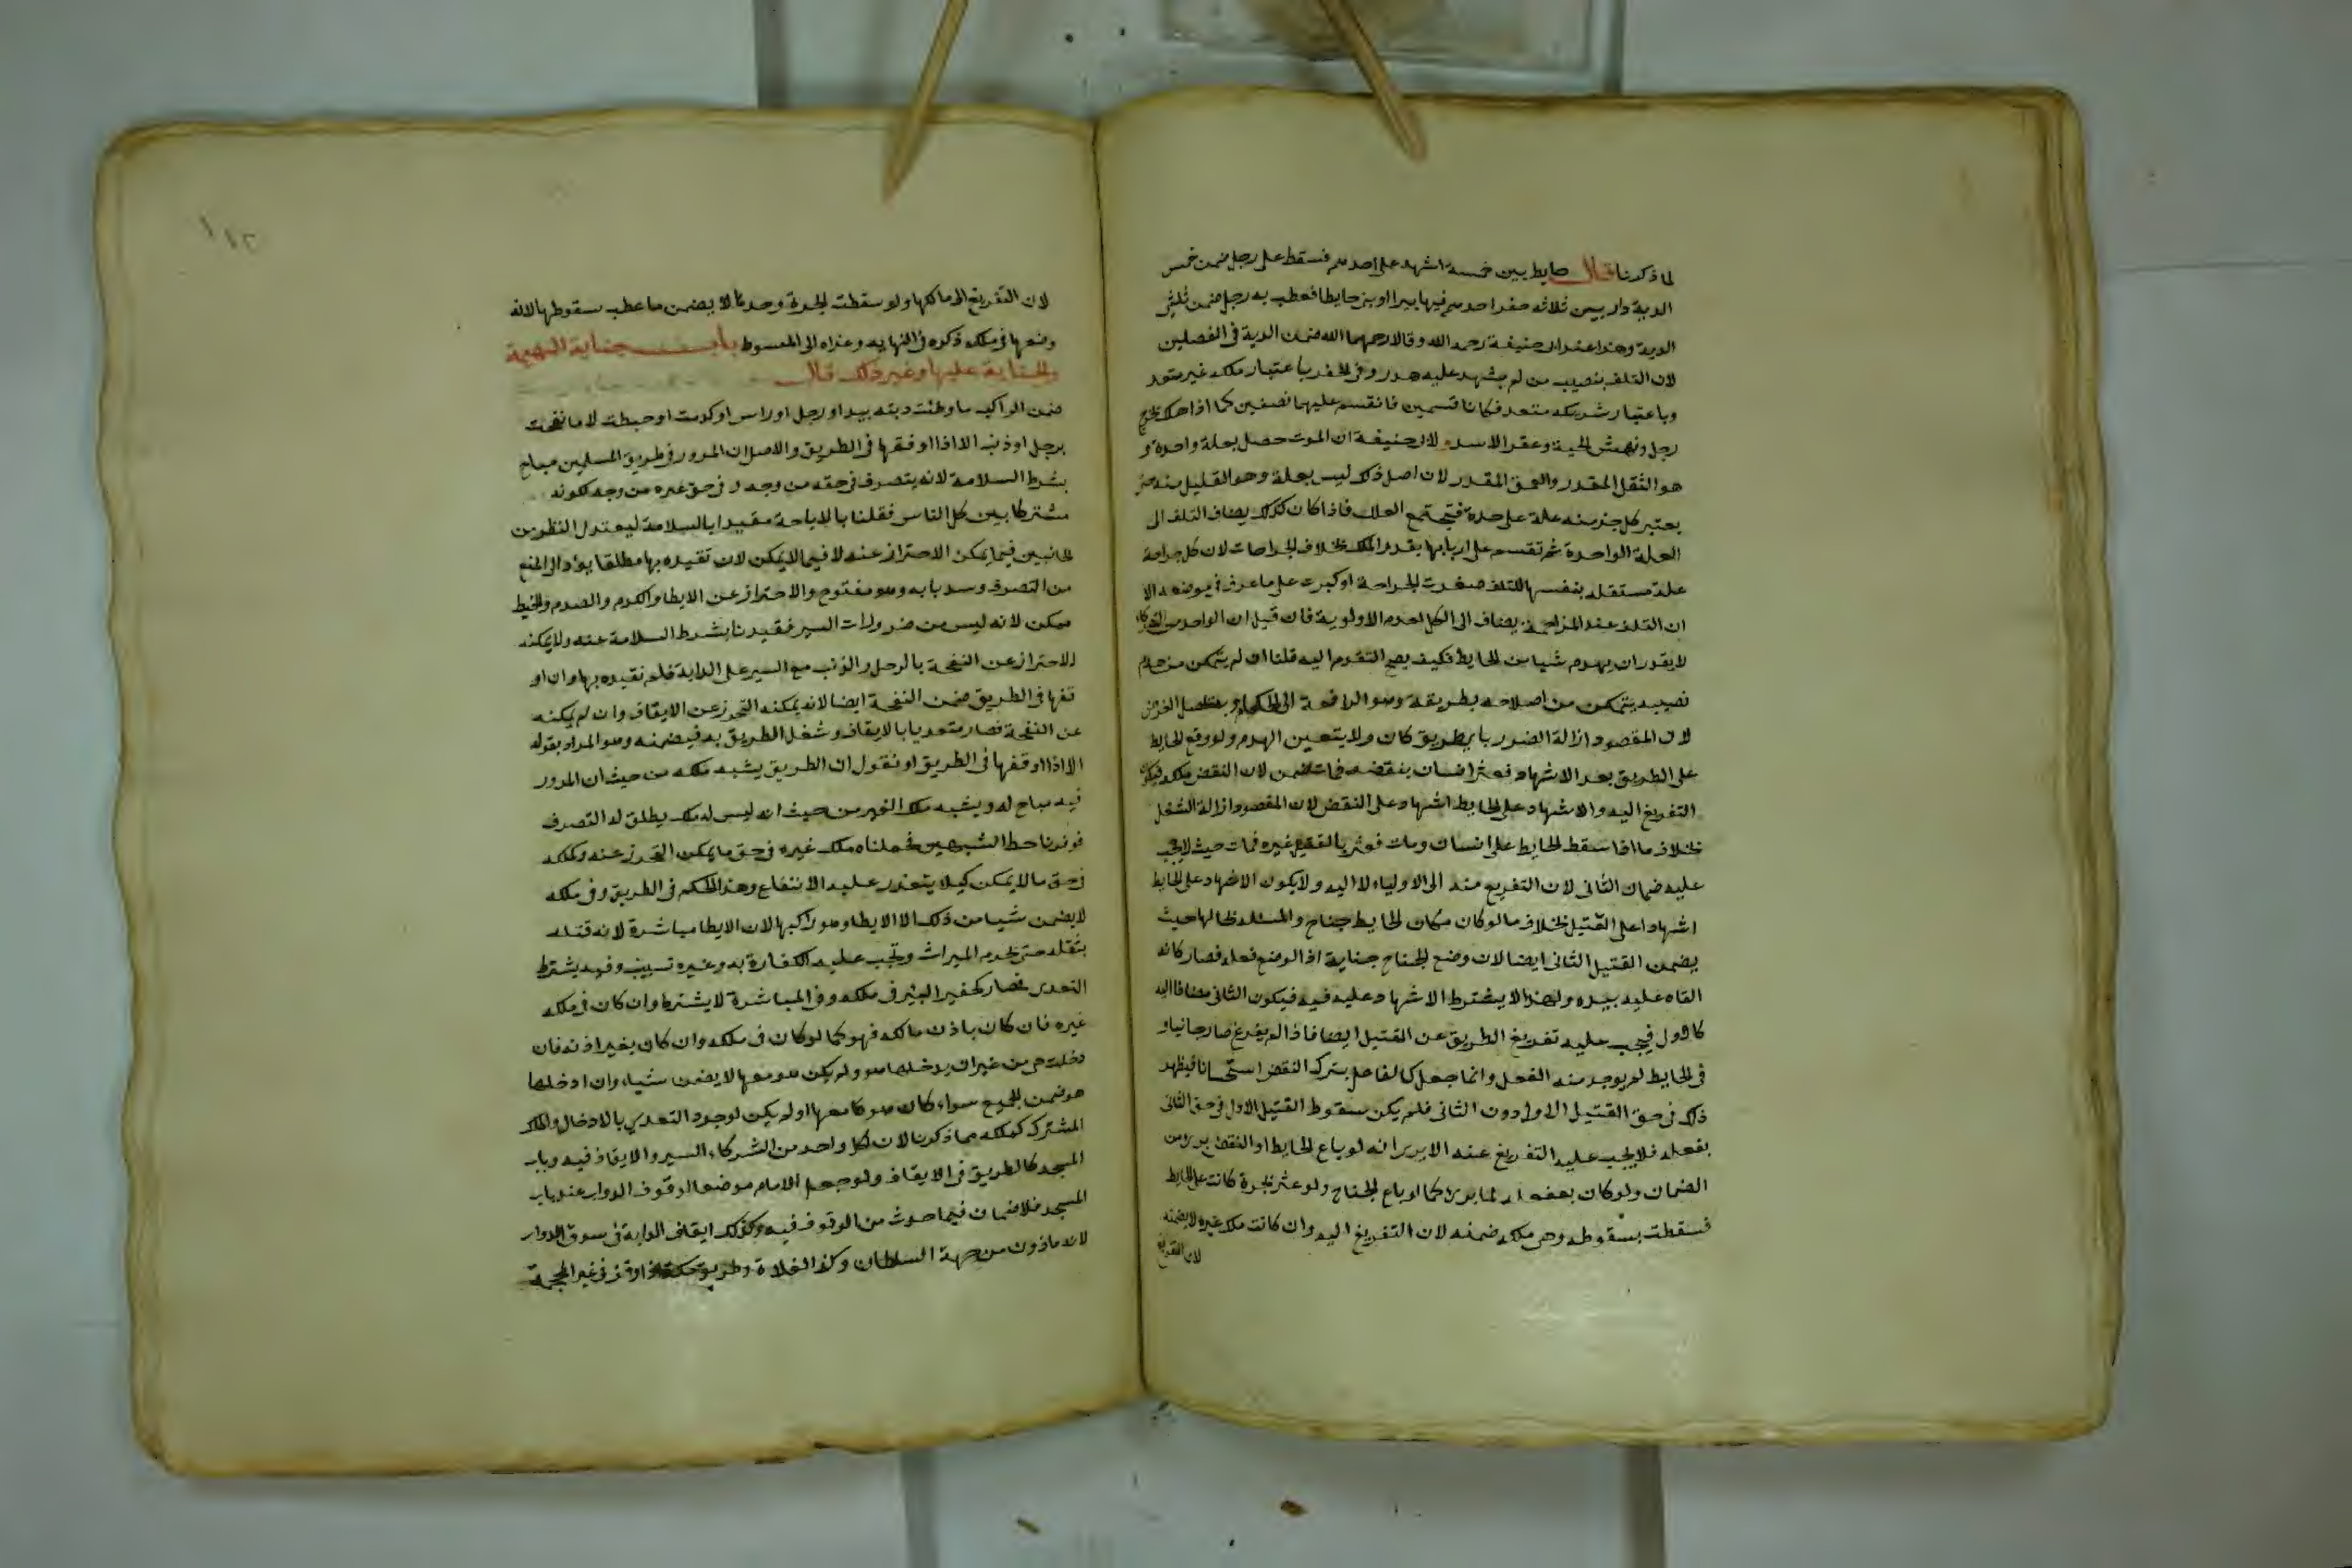 لما ذكرنا قال حايط بين خمسة اشهد على احدهم فسقط على رجل ضمن خمس
الدية دار بين ثلاثة حفر احدهم فيها بيرا او بنى حايطا فعطب به رجل ضمن ثلثى
الدية وهذا عند ابى حنيفة رحمه الله وقالا رحمهما الله ضمن الدية فى الفصلين
لان التلف بنصيب من لم يشهد عليه هدر وفى الحفر باعتبار ملكه غير متعد
وباعتبار شريكه متعد فكانا قسمين فانقسم عليهما نصفين كما اذا هلك بجرح
رجل ونهش الحية وعقر الاسد ولابى حنيفة ان الموت حصل بعلة واحدة و
هو الثقل المقدر والعمق المقدر لان اصل ذلك ليس بعلة وهو القليل منه حتى
يعتبر كل جزء منه علة على حدة فتجتمع العلل فاذا كان كذلك يضاف التلف الى
العلة الواحدة ثم تقسم على اربابها بقدر الملك بخلاف الجراحات لان كل جراحة
علة مستقلة بنفسها للتلف صغرت الجراحة او كبرت على ما عرف فى موضعه الا
ان التلف عند المزاحمة يضاف الى الكل لعدم الاولوية فان قيل ان الواحد من الشركاء
لا يقدر ان يهدم شيا من الحايط فكيف يصح التقدم اليه قلنا ان لم يتمكن من هدم
نصيبه يتمكن من اصلاحه بطريقة وهو المرافعة الى الحكام وبه يحصل الغرض
لان المقصود ازالة الضرر باى طريق كان ولا يتعين الهدم ولو وقع الحايط
على الطريق بعد الاشهاد فعثر انسان بنقضه فمات ضمن لان النقض ملكه فيكون
التفريغ اليه والاشهاد على الحايط اشهاد على النقض لان المقصود ازالة الشغل
بخلاف ما اذا سقط الحايط على انسان ومات فعثر بالقتيل غيره فمات حيث لا يجب
عليه ضمان الثانى لان التفريغ منه الى الاولياء لا اليه ولا يكون الاشهاد على الحايط
اشهادا على القتيل بخلاف ما لو كان مكان الحايط جناح والمسئلة بحالها حيث
يضمن القتيل الثانى ايضا لان وضع الجناح جناية اذ الوضع فعله فصار كانه
القاه عليه بيده ولهذا لا يشترط الاشهاد عليه فيه فيكون الثانى مضافا اليه
كالاول فيجب عليه تفريغ الطريق عن القتيل ايضا فاذا لم يفرغ صار جانيا و
فى الحايط لم يوجد منه الفعل وانما جعل كالفاعل بترك النقض استحسانا فيظهر
ذلك فى حق القتيل الاول دون الثانى فلم يكن سقوط القتيل الاول فى حق الثانى
بفعله فلا يجب عليه التفريغ عنه الا يرى انه لو باع الحايط او النقض يبرى من
الضمان ولو كان بفعله لما يبرى كما لو باع الجناح ولو عثر بجرة كانت على الحايط
فسقطت بسقوطه وهى ملكه ضمنه لان التفريغ اليه وان كانت ملك غيره لا يضمنه
لان التفريغ
١١٢
لان التفريغ الى مالكها ولو سقطت الجرة وحدها لا يضمن ما عطب بسقوطها لانه
وضعها فى ملكه ذكره فى النهايه وعزاه الى المبسوط باب جناية البهيمة
والجناية عليها وغير ذلك قال
ضمن الراكب ما وطئت دبته بيد او رجل او راس او كدمت او خبطت لا ما نفحت
برجل او ذنب الا اذا اوقفها فى الطريق والاصل ان المرور فى طريق المسلمين مباح
بشرط السلامة لانه يتصرف فى حقه من وجه و فى حق غيره من وجه لكونه
مشتركا بين كل الناس فقلنا بالاباحة مقيدا بالسلامة ليعتدل النظر من
الجانبين فيما يمكن الاحتراز عنه لا فيما لا يمكن لان تقيده بها مطلقا يؤدى الى المنع
من التصرف وسد بابه وهو مفتوح والاحتراز عن الايطاء والكدم والصدم والخبط
ممكن لانه ليس من ضرورات السير فقيدنا بشرط السلامة عنه ولا يمكنه
الاحتراز عن النفحة بالرجل والذنب مع السير على الدابة فلم نقيده بها وان او
قفها فى الطريق ضمن النفحة ايضا لانه يمكنه التحرز عن الايقاف وان لم يمكنه
عن النفحة فصار متعديا بالايقاف وشغل الطريق به فيضمنه وهو المراد بقوله
الا اذا اوقفها فى الطريق او نقول ان الطريق يشبه ملكه من حيث ان المرور
فيه مباح له ويشبه ملك الغير من حيث انه ليس له ملك يطلق له التصرف
فوفرنا حظ الشبهين فجعلناه ملك غيره فى حق ما يمكن التحرز عنه وملكه
فى حق ما لا يمكن كيلا يتعذر عليه الانتفاع وهذا الحكم فى الطريق وفى ملكه
لا يضمن شيا من ذلك الا الايطاء وهو راكبها لان الايطا مباشرة لانه قتله
بثقله حتى يحرم الميراث وتجب عليه الكفارة به وغيره تسبيب وفيه يشترط
التعدى فصار كحفير البئر فى ملكه وفى المباشرة لا يشترط وان كان فى ملك
غيره فان كان باذن مالكه فهو كما لو كان فى ملكه وان كان بغير اذنه فان
دخلت هى من غير ان يدخلها هو ولم يكن هو معها لا يضمن شيا، وان ادخلها
هو ضمن الجميع سواء كان هو معها اولم يكن لوجود التعدى بالادخال والملك
المشترك كملكه مما ذكرنا لان لكل واحد من الشركاء السير والايقاف فيه وباب
المسجد كالطريق فى الايقاف ولو جعل الامام موضعا لوقوف الدواب عند باب
المسجد فلا ضمان فيما حدث من الوقوف فيه وكذلك ايقاف الدابة فى سوق الدواب
لانه ماذون من جهة السلطان وكذا الفلاة وطريق مكة اذا وقف فى غير المحجة